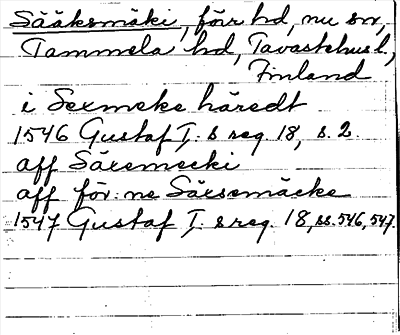 Sääksmäki, förr hd, nu sn,
Tammela hd, Tavastehus l.,
Finland
i Sexmeke häredt
1546 Gustaf I:s reg 18, s. 2
aff Säxemecki
aff för:ne Säxsemäcke
1547 Gustaf I:s reg. 18, ss. 546, 547.